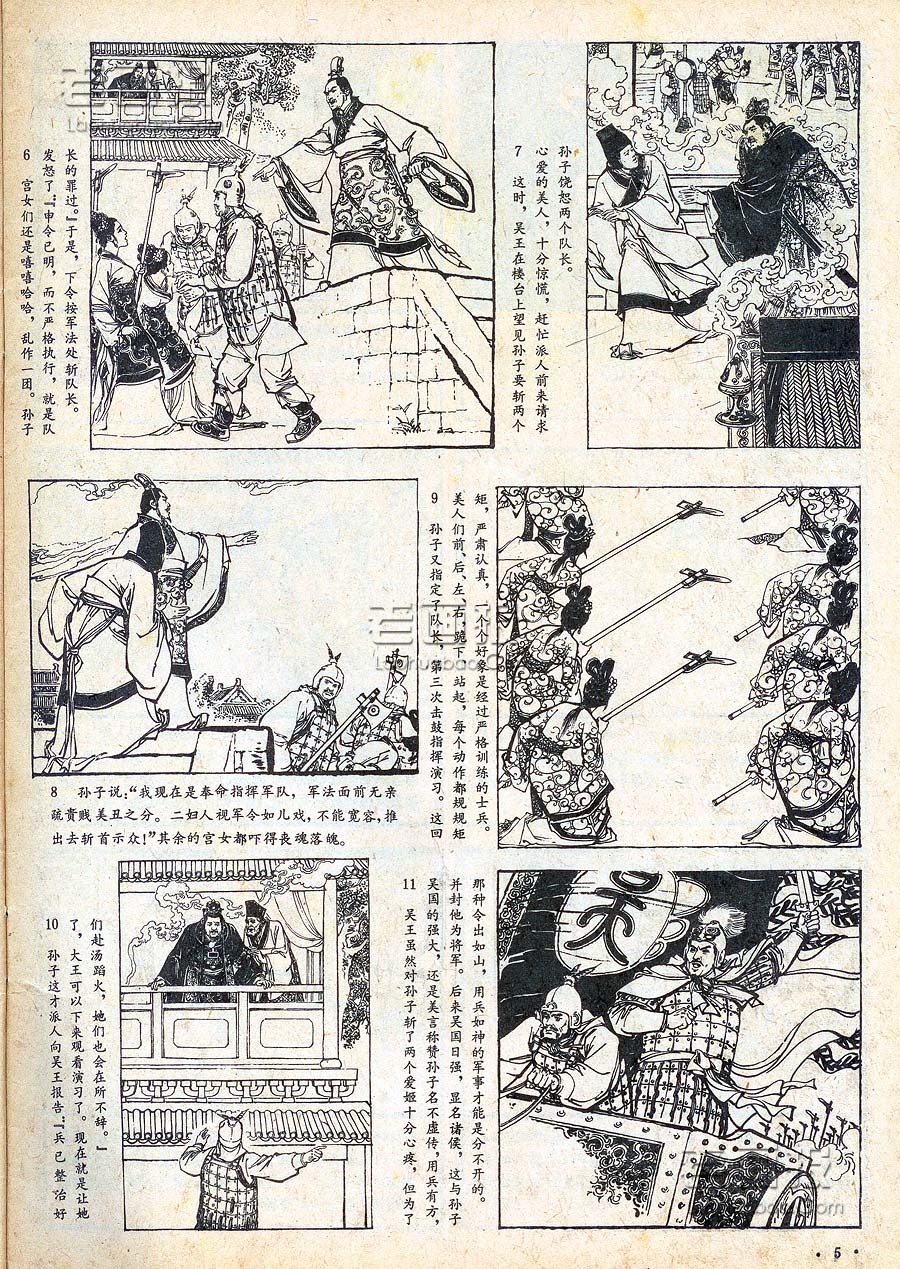 6 宫女们还是嘻嘻哈哈，乱作一团。孙子
发怒了：“申令已明，而不严格执行，就是队
长的罪过。”于是，下令按军法处斩队长。
7 这时，吴王在楼台上望见孙子要斩两个
心爱的美人，十分惊慌，赶忙派人前来请求
孙子饶恕两个队长。
8 孙子说：“我现在是奉命指挥军队，军法面前无亲
疏贵贱美丑之分。二妇人视军令如儿戏，不能宽容，推
出去斩首示众！”其余的宫女都吓得丧魂落魄。
9 孙子又指定了队长，第三次击鼓指挥演习。这回
美人们前、后、左、右，跪下、站起，每个动作都规规矩
矩，严肃认真，一个个好象是经过严格训练的士兵。
10 孙子这才派人向吴王报告：“兵已整治好
了，大王可以下来观看演习了。现在就是让她
们赴汤蹈火，她们也会在所不辞。”
11 吴王虽然对孙子斩了两个爱姬十分心疼，但为了
吴国的强大，还是美言称赞孙子名不虚传，用兵有方，
并封他为将军。后来吴国日强，显名诸侯，这与孙子
那种令出如山，用兵如神的军事才能是分不开的。
吴
·5·